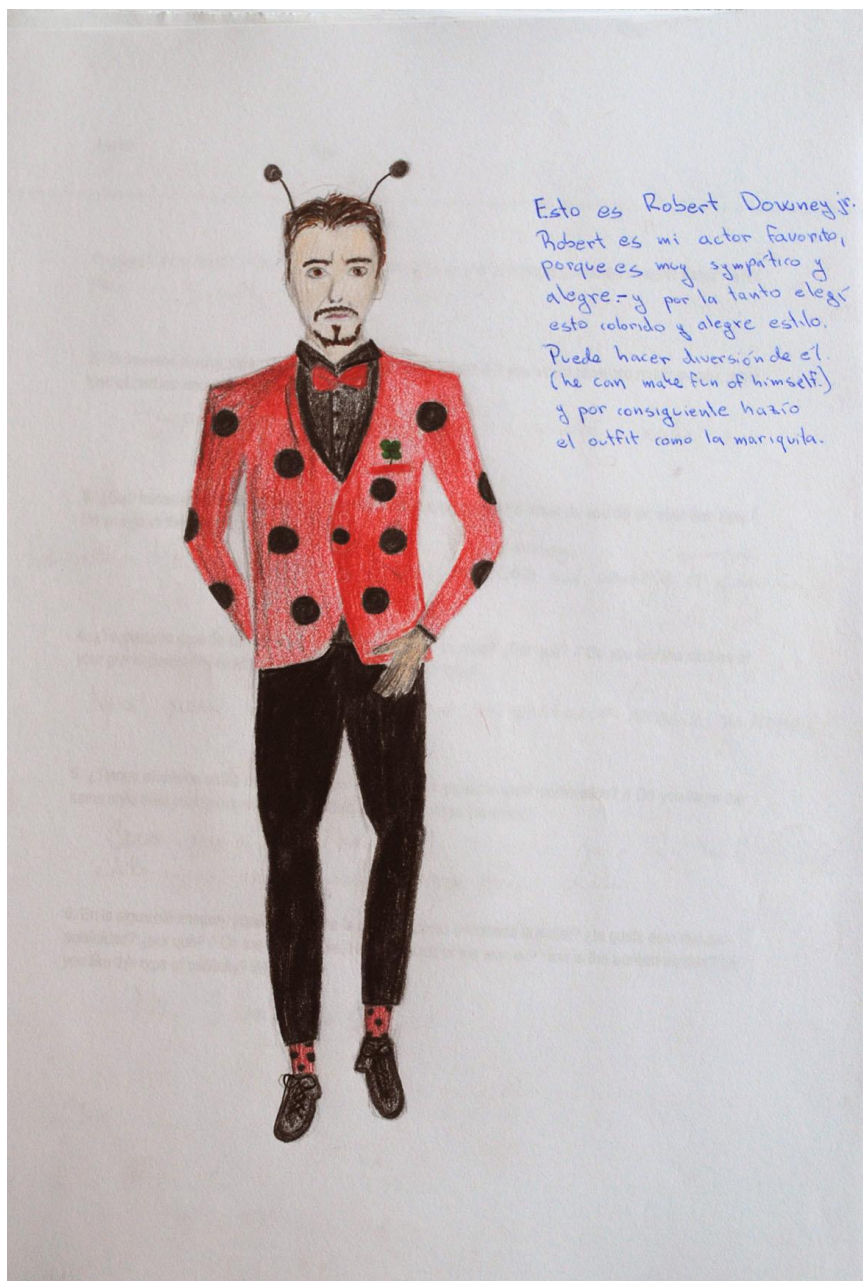 Esto es Robert Downey jr.
Robert es mi actor favorito,
porque es muy sympático y
alegre.- y por la tanto elegí
esto colorido y alegre estilo.
Puede hacer diversión de él.
(he can make fun of himself.)
y por consiguiente hazío
el outfit como la mariquita.